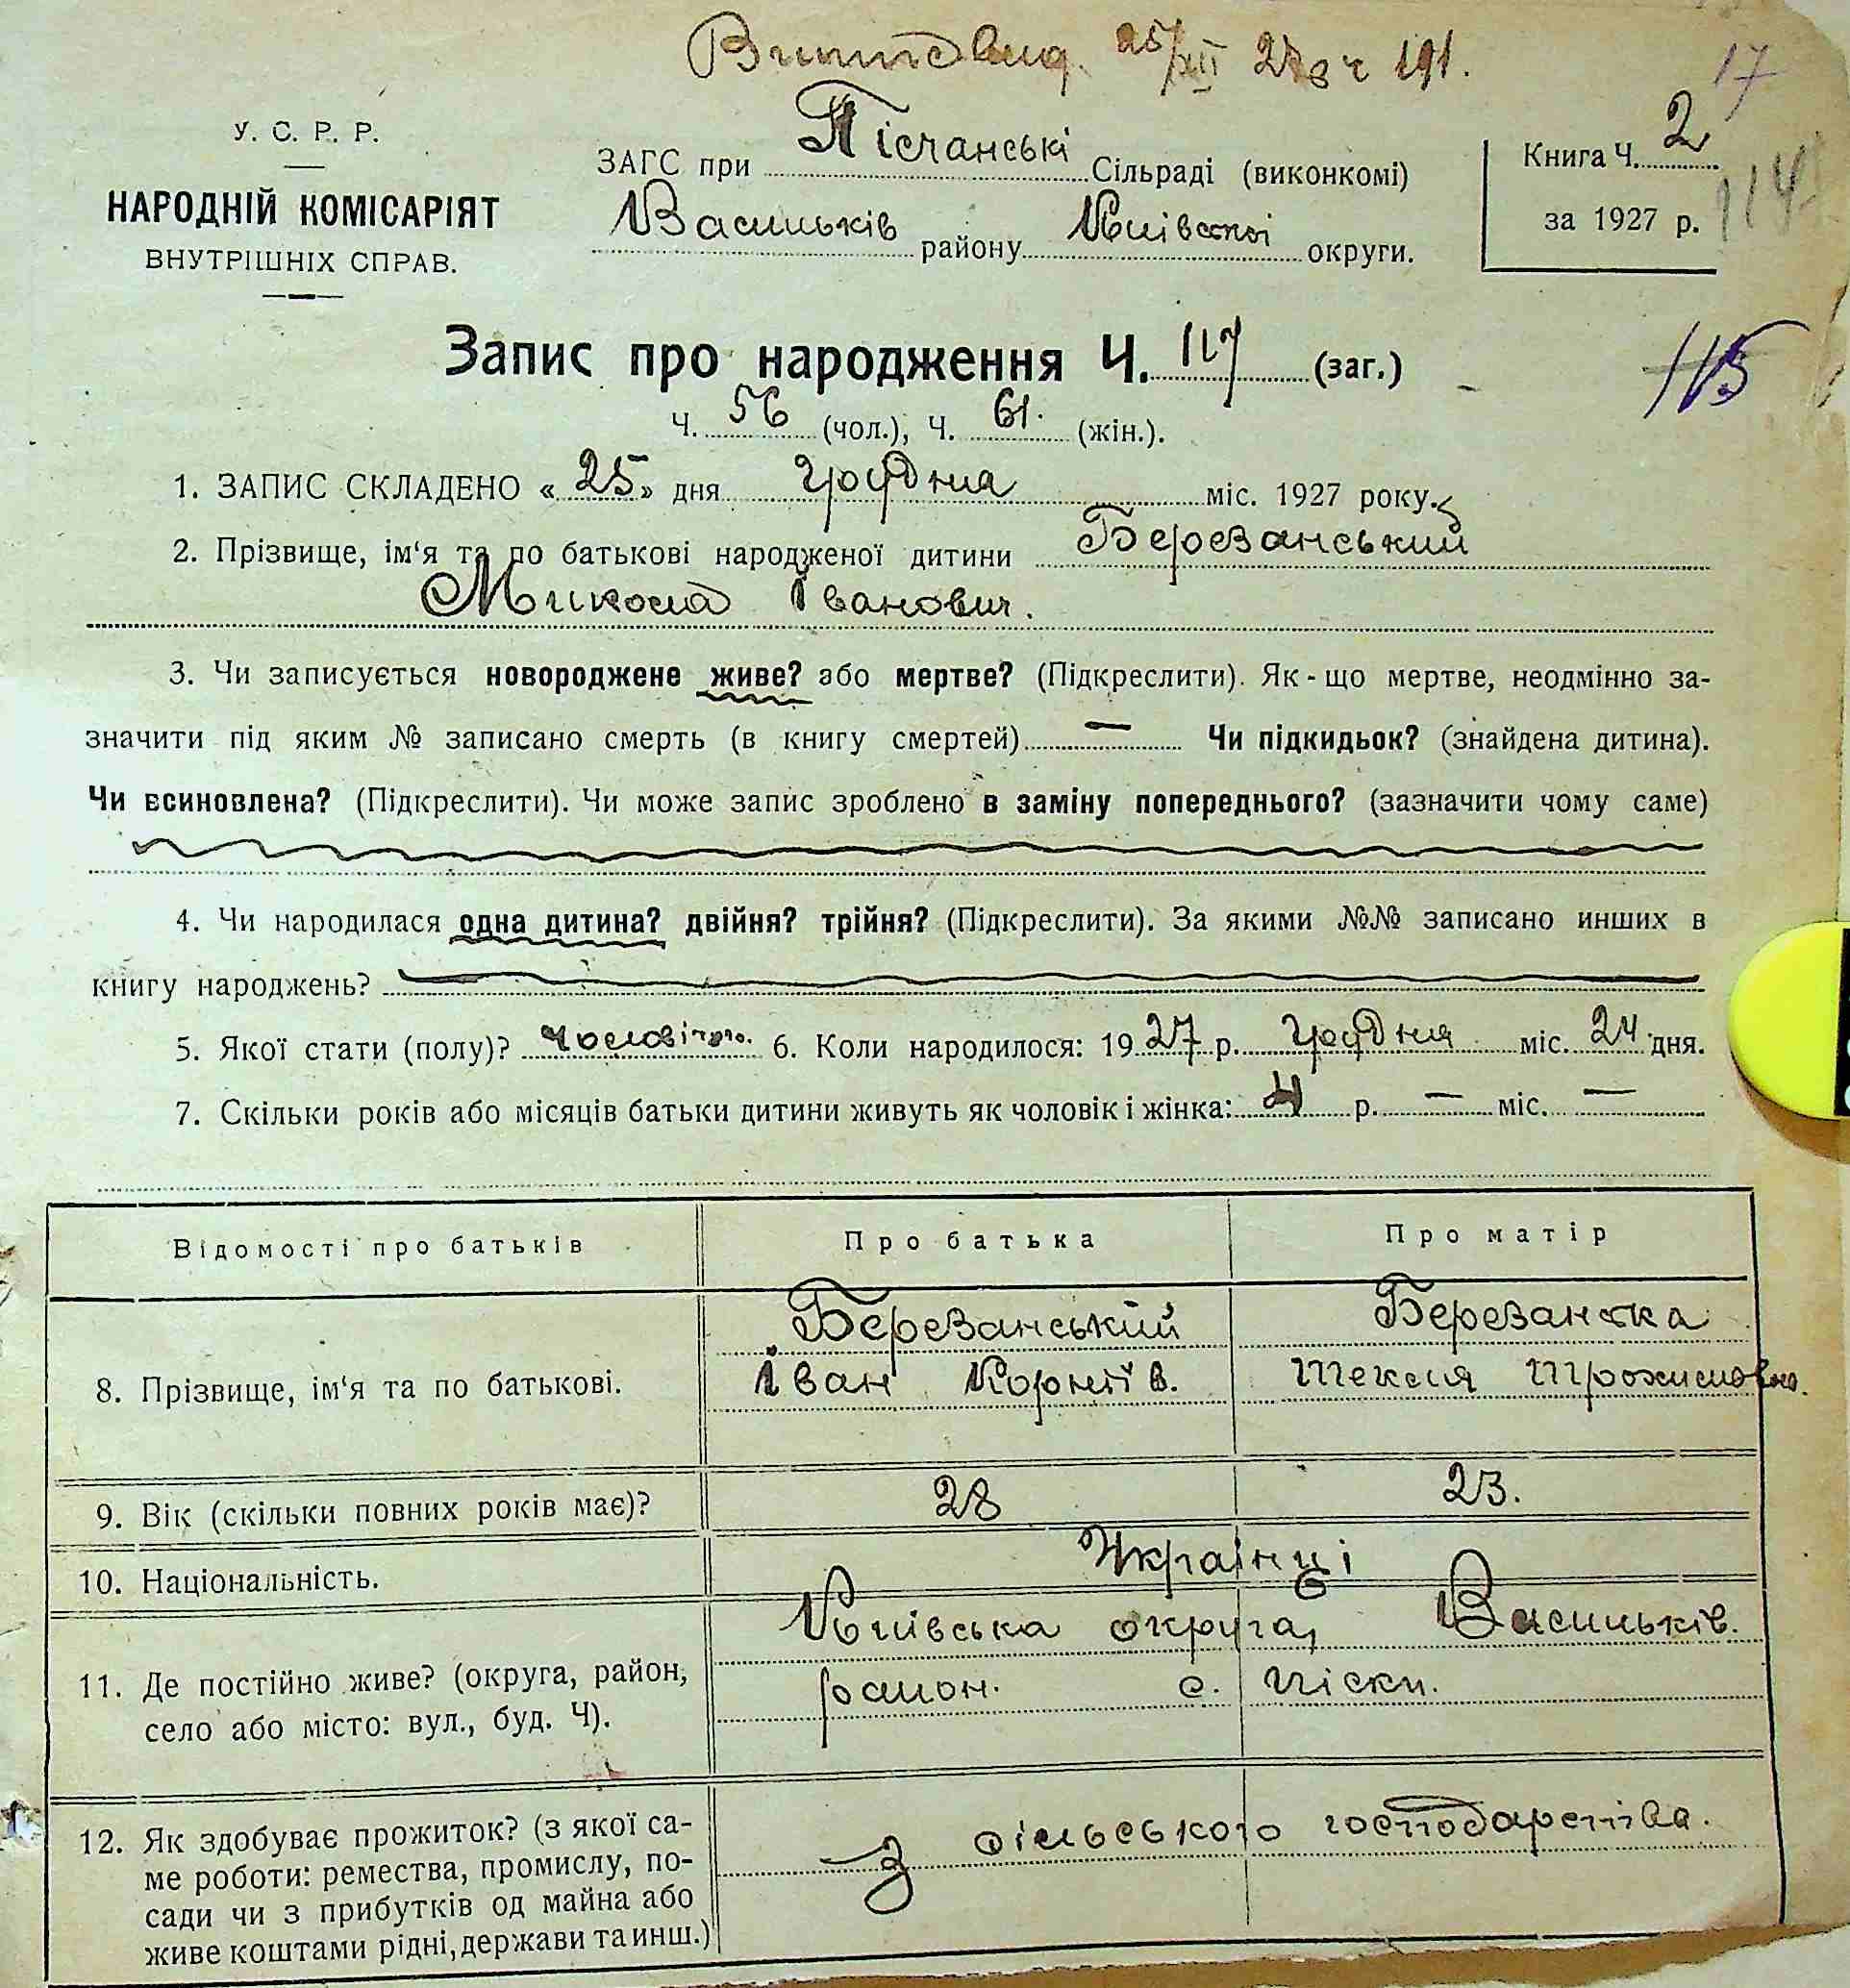 Витяг вид. 25/XII 27 р ч 191.
17
У. С. Р. Р.
НАРОДНІЙ КОМІСАРІЯТ
ВНУТРІШНІХ СПРАВ.
ЗАГС при Пісчанські Сільраді (виконкомі)
Васильків району Київської округи.
Книга Ч. 2
за 1927 р.
114
Запис про народження Ч. 117 (заг.)
115
Ч. 56 (чол.), Ч. 61. (жін.).
1. ЗАПИС СКЛАДЕНО « 25 » дня грудня міс. 1927 року.
2. Прізвище, ім‘я та по батькові народженої дитини Березанський
Микола Іванович.
3. Чи записується новороджене живе? або мертве? (Підкреслити). Як-що мертве, неодмінно за-
значити під яким № записано смерть (в книгу смертей) — Чи підкидьок? (знайдена дитина).
Чи всиновлена? (Підкреслити). Чи може запис зроблено в заміну попереднього? (зазначити чому саме)
4. Чи народилася одна дитина? двійня? трійня? (Підкреслити). За якими №№ записано инших в
книгу народжень?
5. Якої стати (полу)? чоловічого. 6. Коли народилося: 1927 р. грудня міс. 24 дня.
7. Скільки років або місяців батьки дитини живуть як чоловік і жінка: 4 р. — міс. —
Відомості про батьків Про батька Про матір
8. Прізвище, ім‘я та по батькові.
Березанський
Іван Корніїв.
Березанська
Текля
9. Вік (скільки повних років має)? 28 23.
10. Національність. Українці
11. Де постійно живе? (округа, район,
село або місто: вул., буд. Ч).
Київська округа, Васильків.
район. с. Піски.
12. Як здобуває прожиток? (з якої са-
ме роботи: ремества, промислу, по-
сади чи з прибутків од майна або
живе коштами рідні, держави та инш.)
з сільського господарства.